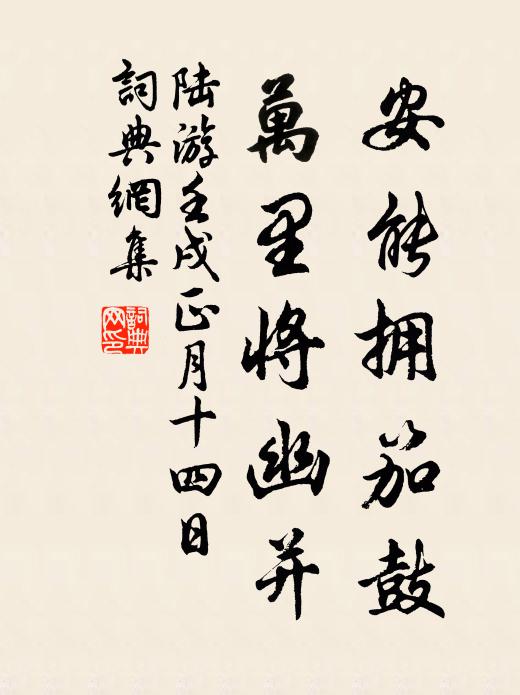 安能拥笳鼓
萬里将幽并
陆游壬戌正月十四日
詞典網集
詞典
网印